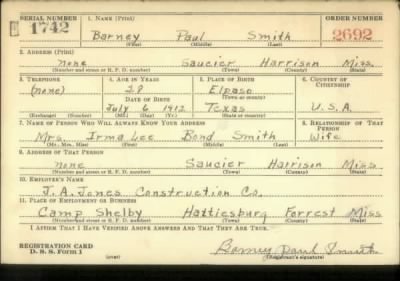 SERIAL NUMBER 1. NAME (Print) ORDER NUMBER
1742 Barney Paul Smith 2692
(First) (Middle) (Last)
2. ADDRESS (Print)
none Saucier Harrison Miss.
(Number and street or R. F. D. number) (Town) (County) (State)
3. TELEPHONE 4. AGE IN YEARS 5. PLACE OF BIRTH 6. COUNTRY OF CITIZENSHIP
(none) 28 Elpaso
(Town or county)
DATE OF BIRTH
July 6 1912 Texas U.S.A.
(Exchange) (Number) (Mo.) (Day) (Yr.) (State or country)
7. NAME OF PERSON WHO WILL ALWAYS KNOW YOUR ADDRESS 8. RELATIONSHIP OF THAT PERSON
Mrs. Irma Lee Bond Smith Wife
(Mr., Mrs., Miss) (First) (Middle) (Last)
9. ADDRESS OF THAT PERSON
none Saucier Harrison Miss
(Number and street or R. F. D. number) (Town) (County) (State)
10. EMPLOYER'S NAME
J.A. Jones Construction Co.
11. PLACE OF EMPLOYMENT OR BUSINESS
Camp Shelby Hattiesburg Forrest Miss
(Number and street or R. F. D. number) (Town) (County) (State)
I AFFIRM THAT I HAVE VERIFIED ABOVE ANSWERS AND THAT THEY ARE TRUE.
REGISTRATION CARD Barney Paul Smith
D. S. S. Form 1 (over) (Registrant's signature)